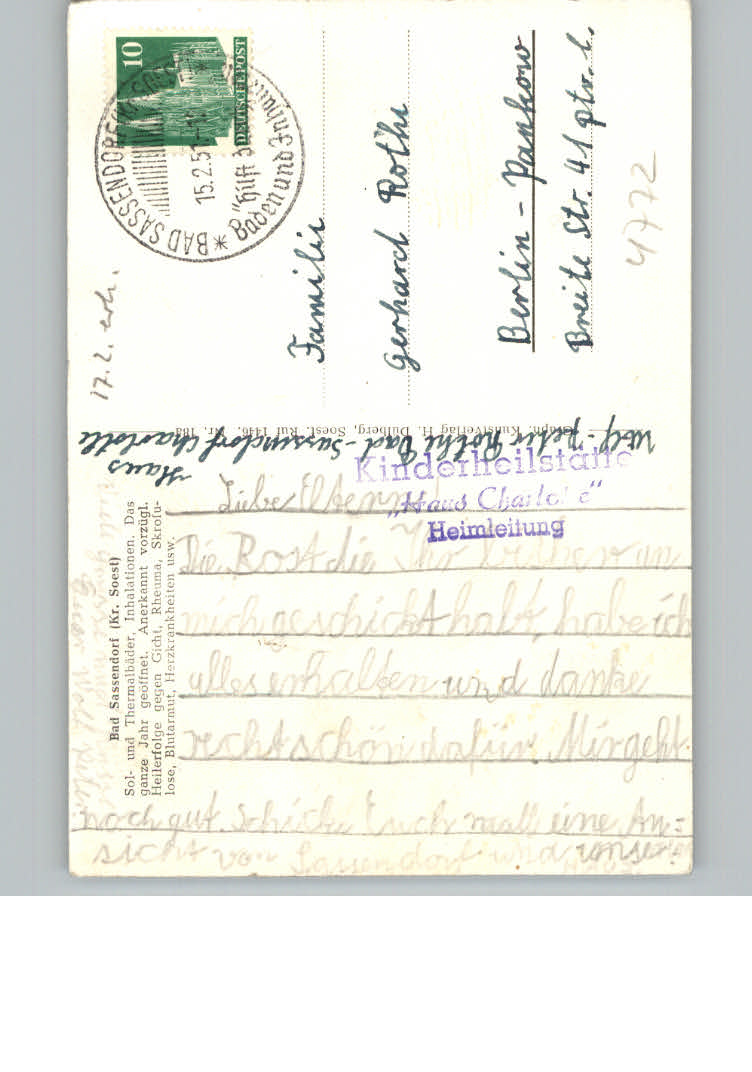 10
DEUTSCHE POST
* BAD SASSENDORF
15.2.51
hilft
Baden und
17.2. erh.
Familie
Gerhard Rothe
Berlin - Pankow
Breite Str. 41 ptr. l.
4772
Graph. Kunstverlag H. Dülberg, Soest. Ruf 1446. Nr. 188
Wolf-Peter Rothe Bad-Sassendorf
Haus Charlotte
Kinderheilstätte
"Haus Charlotte"
Heimleitung
Bad Sassendorf (Kr. Soest)
Sol- und Thermalbäder, Inhalationen. Das
ganze Jahr geöffnet. Anerkannt vorzügl.
Heilerfolge gegen Gicht, Rheuma, Skrofu-
lose, Blutarmut, Herzkrankheiten usw.
Liebe Eltern
Die Post die Ihr bisher an
mich geschickt habt, habe ich
alles erhalten und danke
recht schön dafür. Mir geht
noch gut. Schicke Euch mall eine An=
sicht von Sassendorf und unser
Euer Wolf Peter